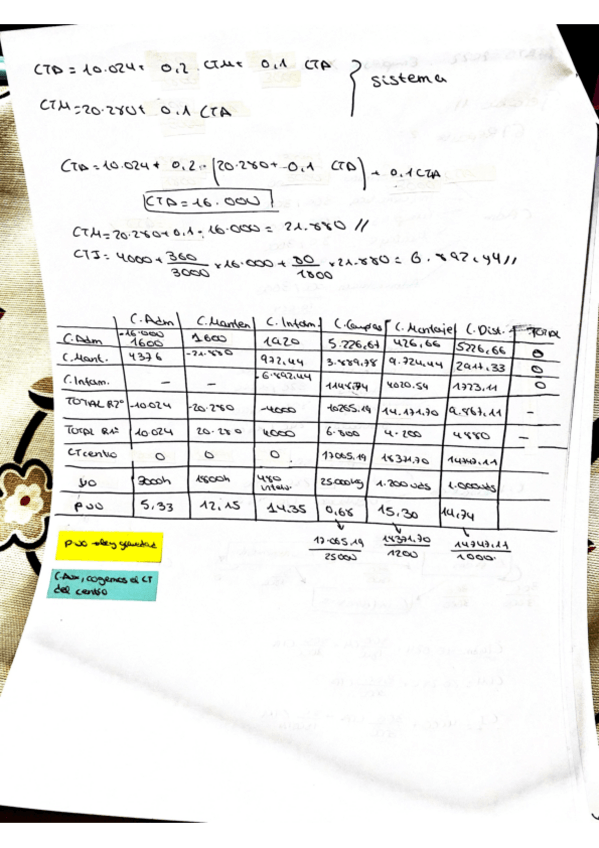 CTA = 10.024 + 0,2 . CTM + 0,1 CTA
sistema
CTM = 20.280 + 0.1 CTA
CTA = 10.024 + 0,2 . (20.280 + 0,1 CTA) + 0,1 CTA
CTA = 16.000
CTM = 20.280 + 0,1 . 16.000 = 21.880 //
CTI = 4000 + 360/3000 x 16.000 + 80/1800 x 21.880 = 6.892,44 //
C.Adm C.Manten C.Inform C.Compras C.Montaje C.Dist. TOTAL
C.Adm -16.000 1600 1600 1920 5.226,67 426,66 5226,66 0
C.Mant. 4376 -21.880 972,44 3.889,78 9.724,44 2917,33 0
C.Inform. - - -6.892,44 1148,74 4020,54 1723,11 0
TOTAL R2º -10024 -20.280 -4000 10265,19 14.171,70 9.867,11 -
TOTAL R1º 10024 20.280 4000 6.800 4.200 4880 -
CT centro 0 0 0 17065,19 18371,70 14747,11
UO 3000h 1800h 480 25000kg 1.200 uds 1.000uds
PUO 5,33 12,15 14,35 0,68 15,30 14,74
17.065,19/25000 18371,70/1200 14747,11/1000
C.A, cogemos el CT
del centro